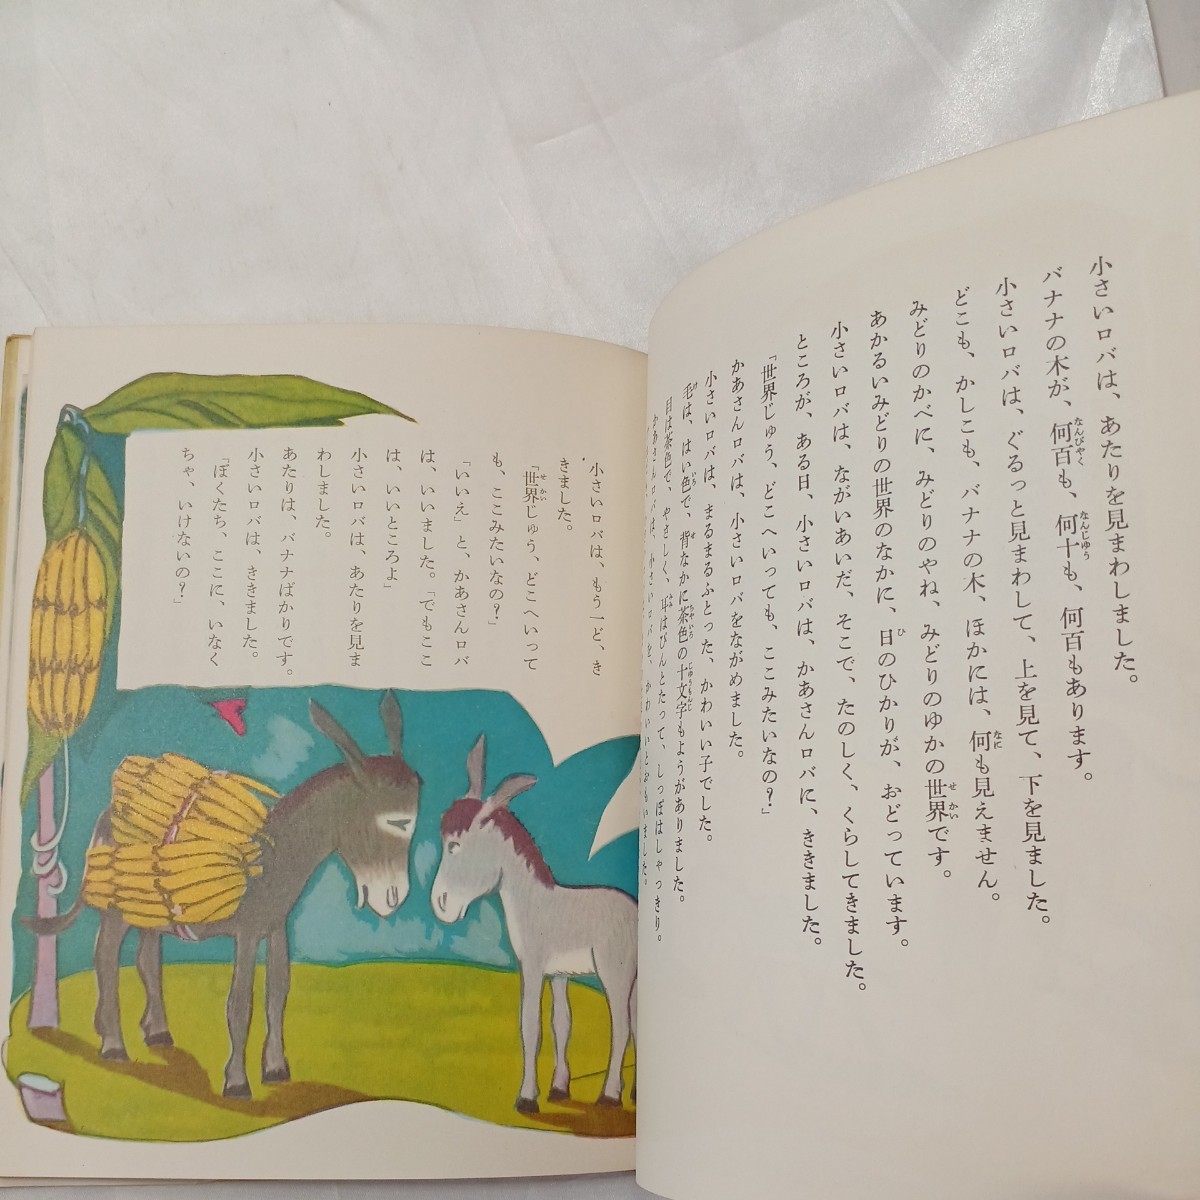 小さいロバは、あたりを見まわしました。
バナナの木が、何百も、何十も、何百もあります。
小さいロバは、ぐるっと見まわして、上を見て、下を見ました。
どこも、かしこも、バナナの木、ほかには、何も見えません。
みどりのかべに、みどりのやね、みどりのゆかの世界です。
あかるいみどりの世界のなかに、日のひかりが、おどっています。
小さいロバは、ながいあいだ、そこで、たのしく、くらしてきました。
ところが、ある日、小さいロバは、かあさんロバに、ききました。
「世界じゅう、どこへいっても、ここみたいなの?」
かあさんロバは、小さいロバをながめました。
小さいロバは、まるまるふとった、かわいい子でした。
毛は、はい色で、背なかに茶色の十文字もようがありました。
目は茶色で、やさしく、耳はぴんとたって、しっぽはしゃっきり。
かあさんロバは、小さいロバを、かわいいとおもいました。
小さいロバは、もう一ど、き
きました。
「世界じゅう、どこへいって
も、ここみたいなの?」
「いいえ」と、かあさんロバ
は、いいました。「でもここ
は、いいところよ」
小さいロバは、あたりを見ま
わしました。
あたりは、バナナばかりです。
小さいロバは、ききました。
「ぼくたち、ここに、いなく
ちゃ、いけないの?」